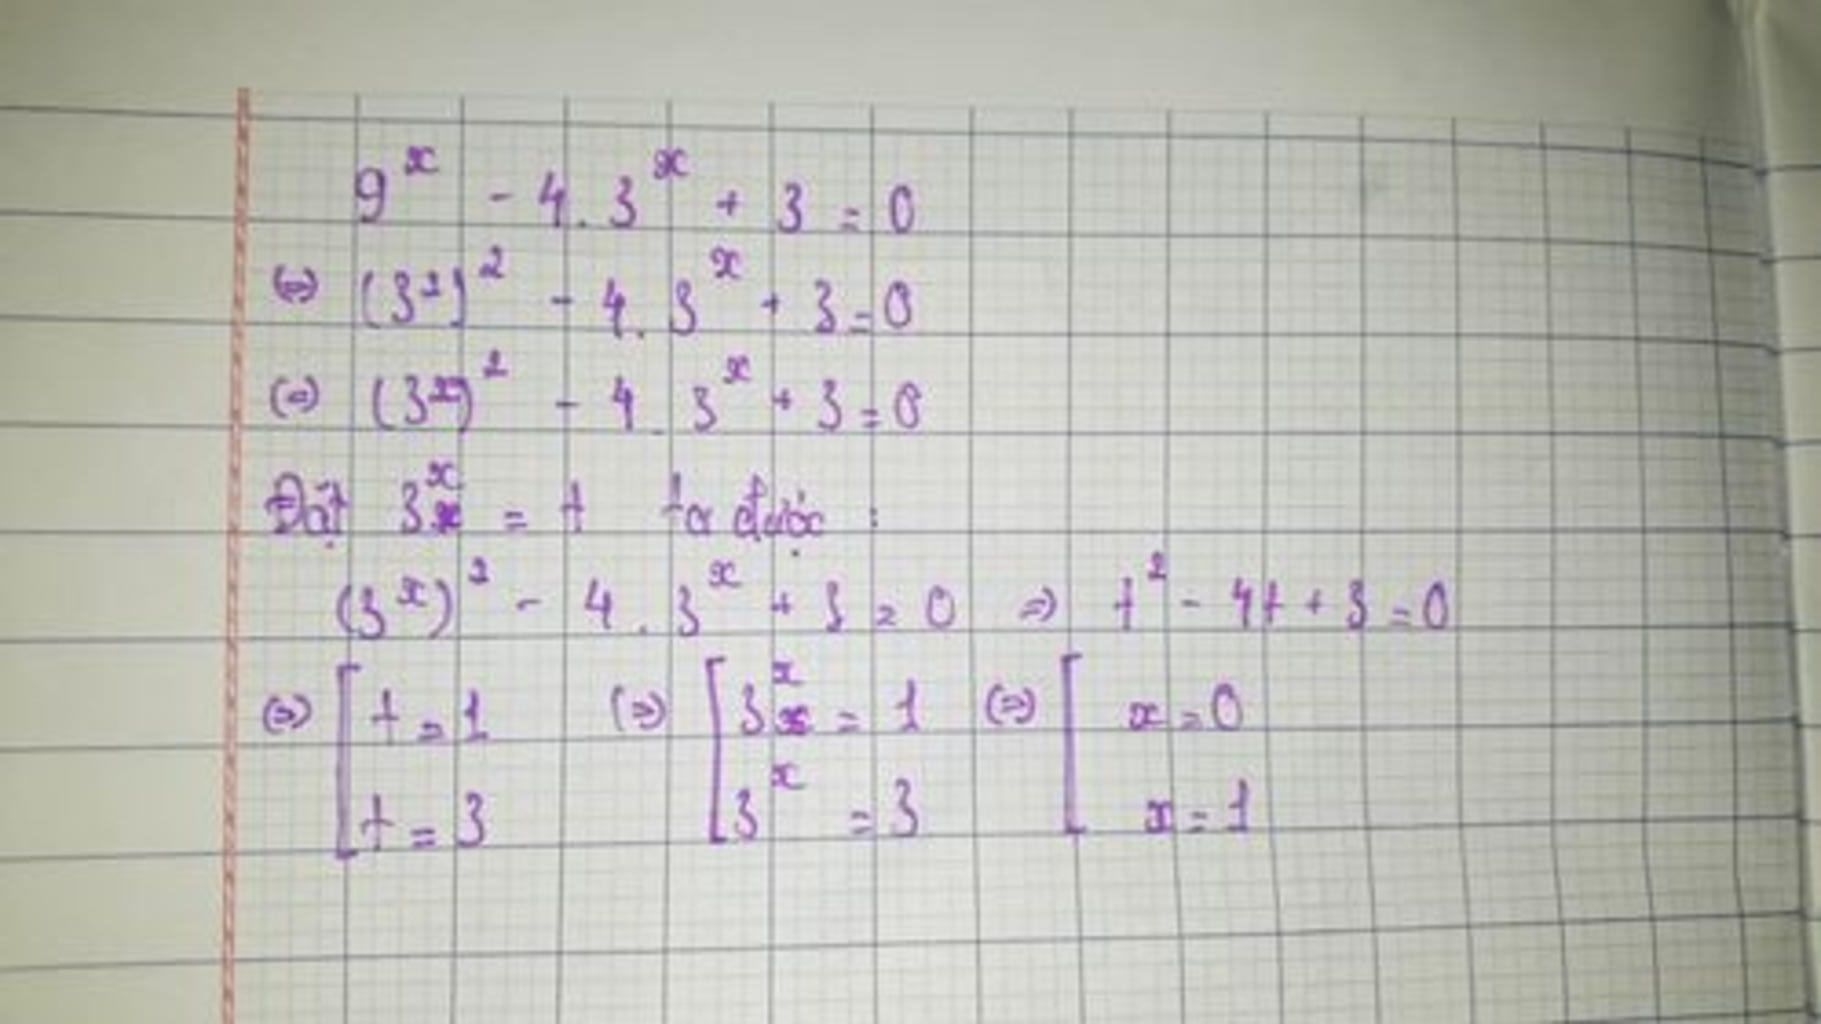 9^x - 4.3^x + 3 = 0
(=) (3^2)^2 - 4.3^x + 3 = 0
(=) (3^x)^2 - 4.3^x + 3 = 0
Đặt 3^x = t ta được :
(3^x)^2 - 4.3^x + 3 = 0 => t^2 - 4t + 3 = 0
(=>) [ t = 1 (=>) [ 3^x = 1 (=>) [ x = 0
t = 3 3^x = 3 x = 1